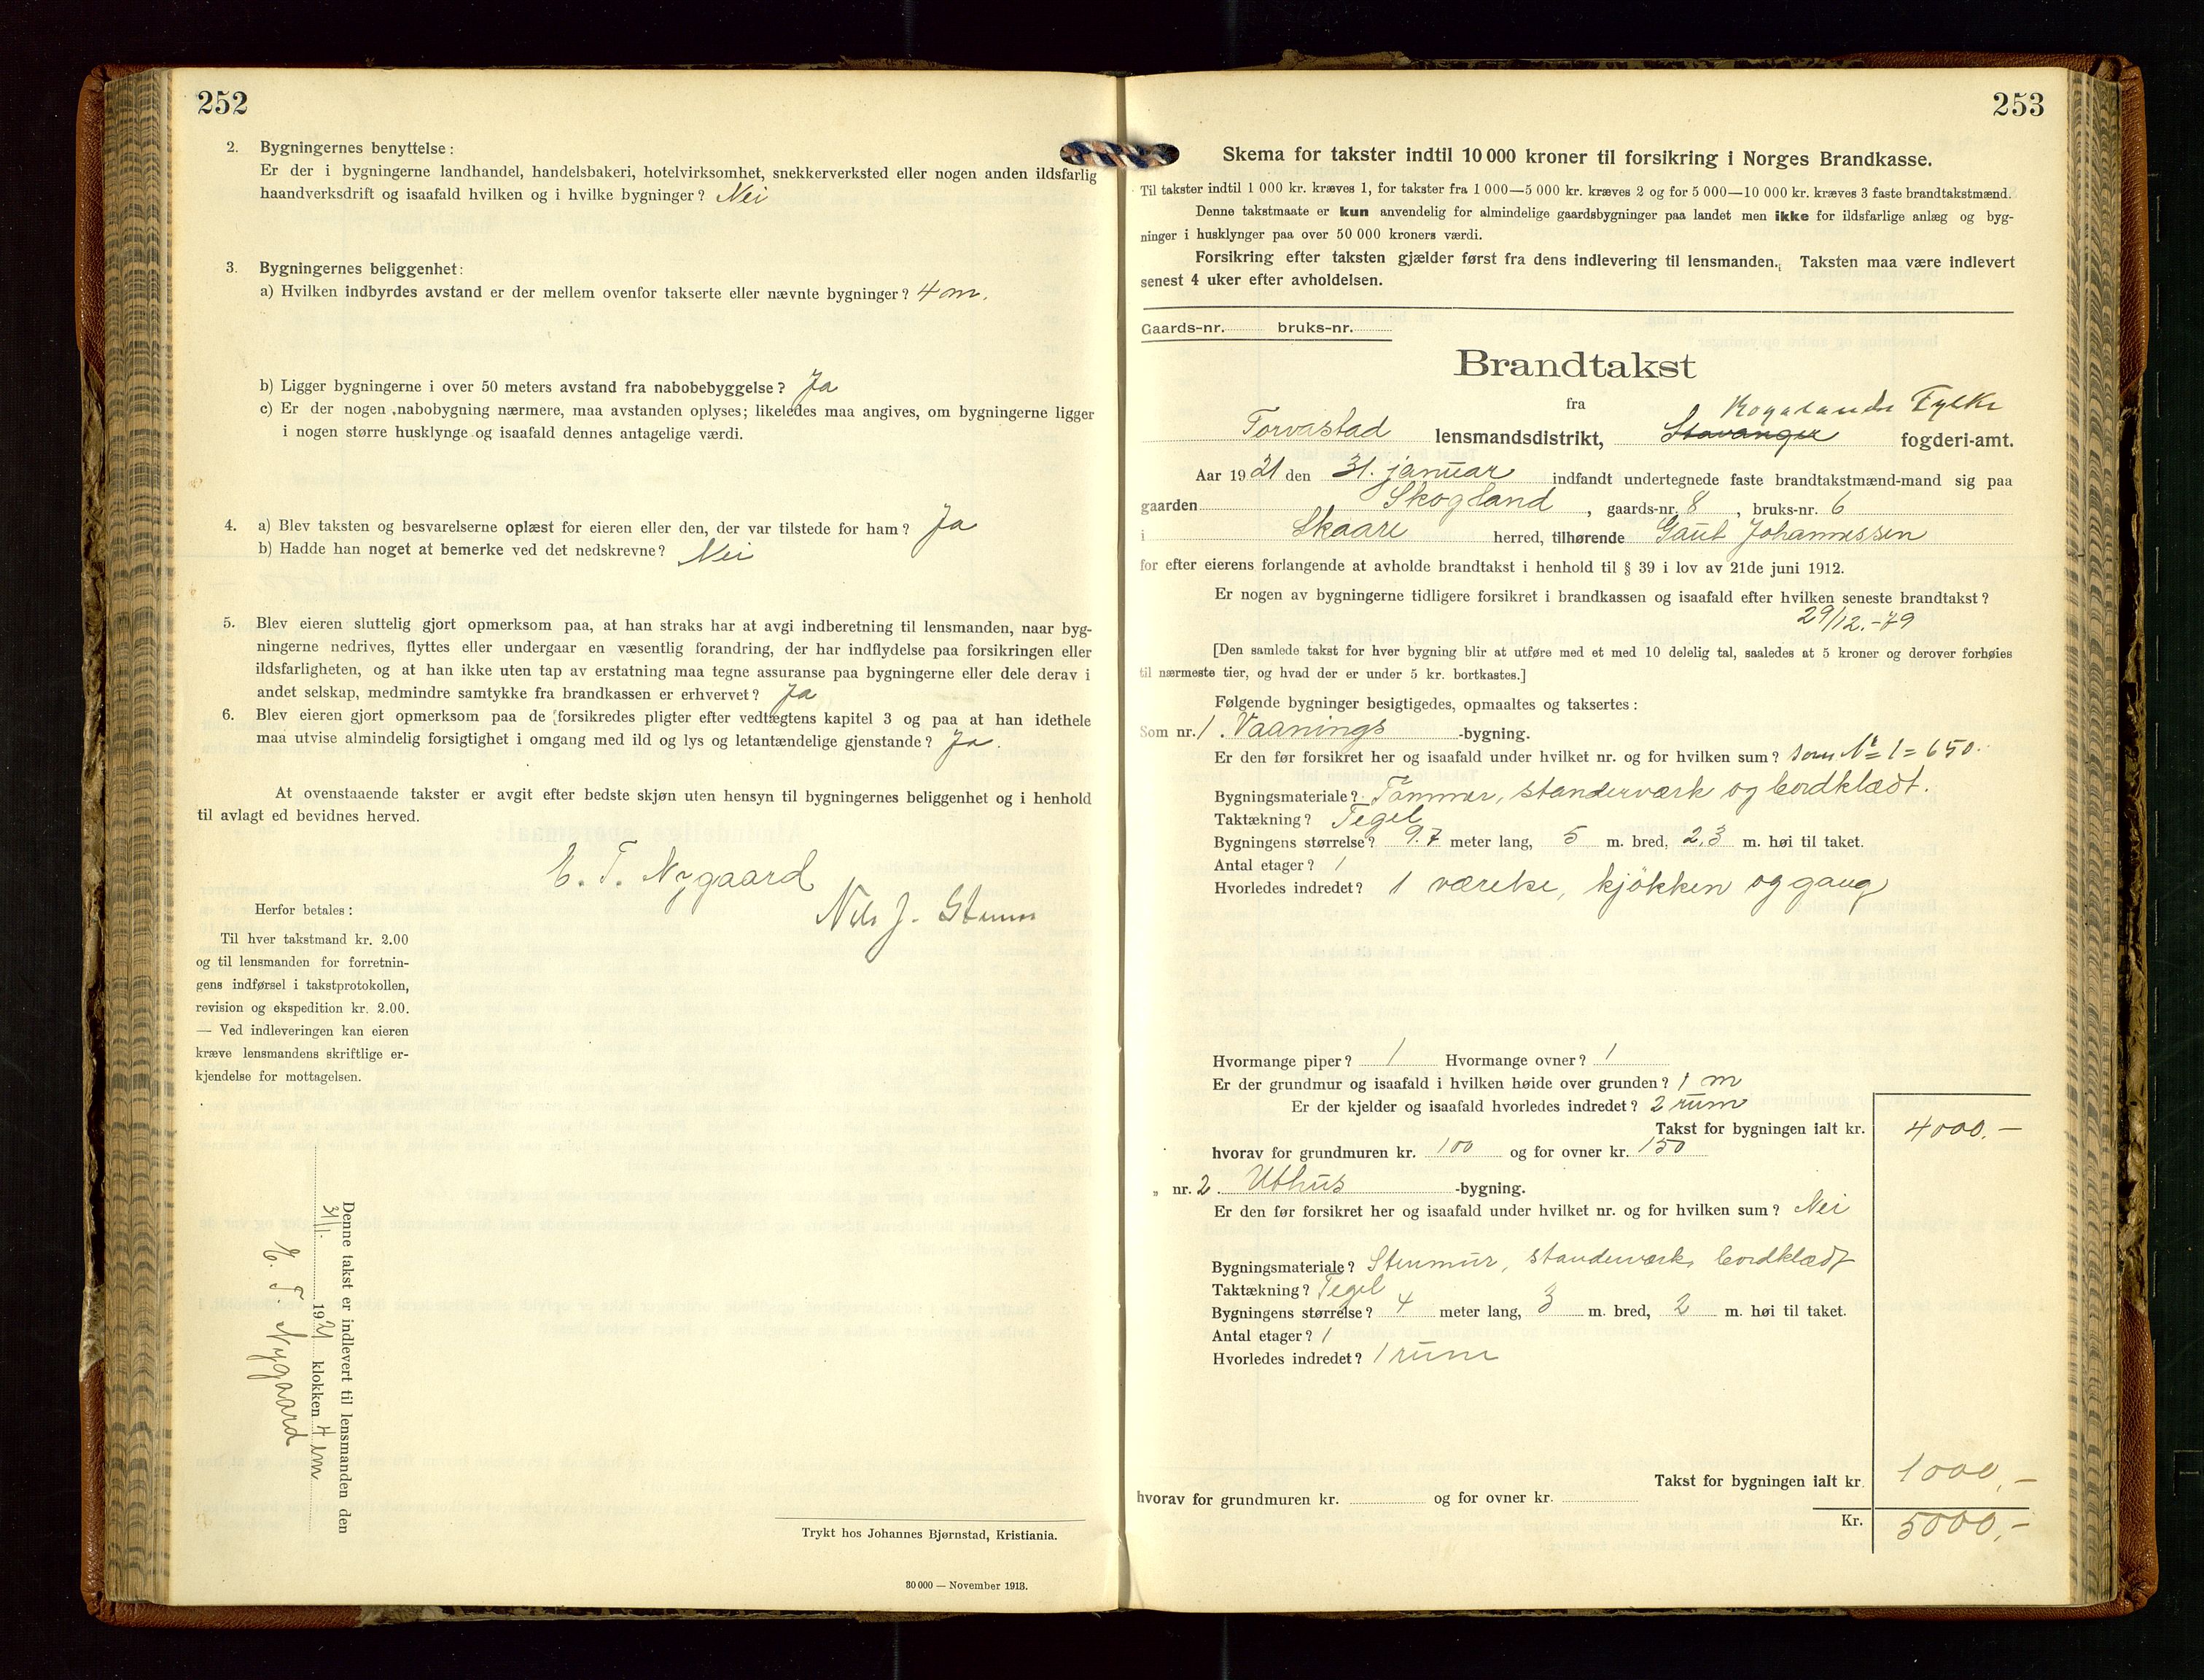 252
2. Bygningernes benyttelse:
Er der i bygningerne landhandel, handelsbakeri, hotelvirksomhet, snekkerverksted eller nogen anden ildsfarlig
haandverksdrift og isaafald hvilken og i hvilke bygninger? Nei
3. Bygningernes beliggenhet:
a) Hvilken indbyrdes avstand er der mellem ovenfor takserte eller nævnte bygninger? 4 m.
b) Ligger bygningerne i over 50 meters avstand fra nabobebyggelse? Ja
c) Er der nogen nabobygning nærmere, maa avstanden oplyses; likeledes maa angives, om bygningerne ligger
i nogen større husklynge og isaafald dennes antagelige værdi.
4. a) Blev taksten og besvarelserne oplæst for eieren eller den, der var tilstede for ham? Ja
b) Hadde han noget at bemerke ved det nedskrevne? Nei
5. Blev eieren sluttelig gjort opmerksom paa, at han straks har at avgi indberetning til lensmanden, naar byg-
ningerne nedrives, flyttes eller undergaar en væsentlig forandring, der har indflydelse paa forsikringen eller
ildsfarligheten, og at han ikke uten tap av erstatning maa tegne assuranse paa bygningerne eller dele derav i
andet selskap, medmindre samtykke fra brandkassen er erhvervet? Ja
6. Blev eieren gjort opmerksom paa de forsikredes pligter efter vedtægtens kapitel 3 og paa at han idethele
maa utvise almindelig forsigtighet i omgang med ild og lys og letantændelige gjenstande? Ja.
At ovenstaaende takster er avgit efter bedste skjøn uten hensyn til bygningernes beliggenhet og i henhold
til avlagt ed bevidnes herved.
E. T. Nygaard
Nils J.
Herfor betales:
Til hver takstmand kr. 2.00
og til lensmanden for forretnin-
gens indførsel i takstprotokollen,
revision og ekspedition kr. 2.00.
— Ved indleveringen kan eieren
kræve lensmandens skriftlige er-
kjendelse for mottagelsen.
Denne takst er indlevert til lensmanden den
31/1. 1921 klokken 4 em
E. T. Nygaard
Trykt hos Johannes Bjørnstad, Kristiania.
30 000 — November 1913.
253
Skema for takster indtil 10 000 kroner til forsikring i Norges Brandkasse.
Til takster indtil 1 000 kr. kræves 1, for takster fra 1 000—5 000 kr. kræves 2 og for 5 000—10 000 kr. kræves 3 faste brandtakstmænd.
Denne takstmaate er kun anvendelig for almindelige gaardsbygninger paa landet men ikke for ildsfarlige anlæg og byg-
ninger i husklynger paa over 50 000 kroners værdi.
Forsikring efter taksten gjælder først fra dens indlevering til lensmanden. Taksten maa være indlevert
senest 4 uker efter avholdelsen.
Gaards-nr. bruks-nr.
Brandtakst
fra
Rogalands Fylke
Torvastad lensmandsdistrikt, Stavanger fogderi-amt.
Aar 1921 den 31. januar indfandt undertegnede faste brandtakstmænd-mand sig paa
gaarden Skogland, gaards-nr. 8, bruks-nr. 6
i Skaare herred, tilhørende Gaut Johannessen
for efter eierens forlangende at avholde brandtakst i henhold til § 39 i lov av 21de juni 1912.
Er nogen av bygningerne tidligere forsikret i brandkassen og isaafald efter hvilken seneste brandtakst?
29/12.-79
[Den samlede takst for hver bygning blir at utføre med et med 10 delelig tal, saaledes at 5 kroner og derover forhøies
til nærmeste tier, og hvad der er under 5 kr. bortkastes.]
Følgende bygninger besigtigedes, opmaaltes og taksertes:
Som nr. 1. Vaanings -bygning.
Er den før forsikret her og isaafald under hvilket nr. og for hvilken sum? som № 1 = 650.
Bygningsmateriale? Tømmer, standerværk og bordklædt.
Taktækning? Tegel
Bygningens størrelse? 9.7 meter lang, 5 m. bred, 2,3 m. høi til taket.
Antal etager? 1
Hvorledes indredet? 1 værelse, kjøkken og gang
Hvormange piper? 1 Hvormange ovner? 1
Er der grundmur og isaafald i hvilken høide over grunden? 1 m
Er der kjelder og isaafald hvorledes indredet? 2 rum
Takst for bygningen ialt kr. 4000.—
hvorav for grundmuren kr. 100 og for ovner kr. 150
„ nr. 2. Uthus -bygning.
Er den før forsikret her og isaafald under hvilket nr. og for hvilken sum? Nei
Bygningsmateriale? Stenmur, standerværk, bordklædt
Taktækning? Tegel
Bygningens størrelse? 4 meter lang, 3 m. bred, 2 m. høi til taket.
Antal etager? 1
Hvorledes indredet? 1 rum
Takst for bygningen ialt kr. 1000,—
hvorav for grundmuren kr. og for ovner kr.
Kr. 5000,—